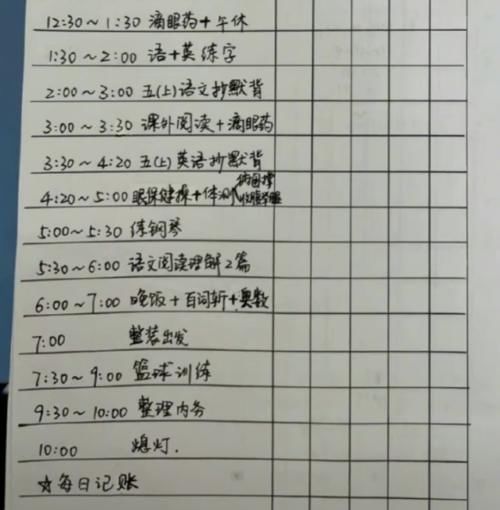 12:30~1:30 滴眼药+午休
1:30~2:00 语+英练字
2:00~3:00 五(上)语文抄默背
3:00~3:30 课外阅读+滴眼药
3:30~4:20 五(上)英语抄默背
4:20~5:00 眼保健操+体测
5:00~5:30 练钢琴
5:30~6:00 语文阅读理解2篇
6:00~7:00 晚饭+百词斩+奥数
7:00 整装出发
7:30~9:00 篮球训练
9:30~10:00 整理内务
10:00 熄灯.
☆每日记账